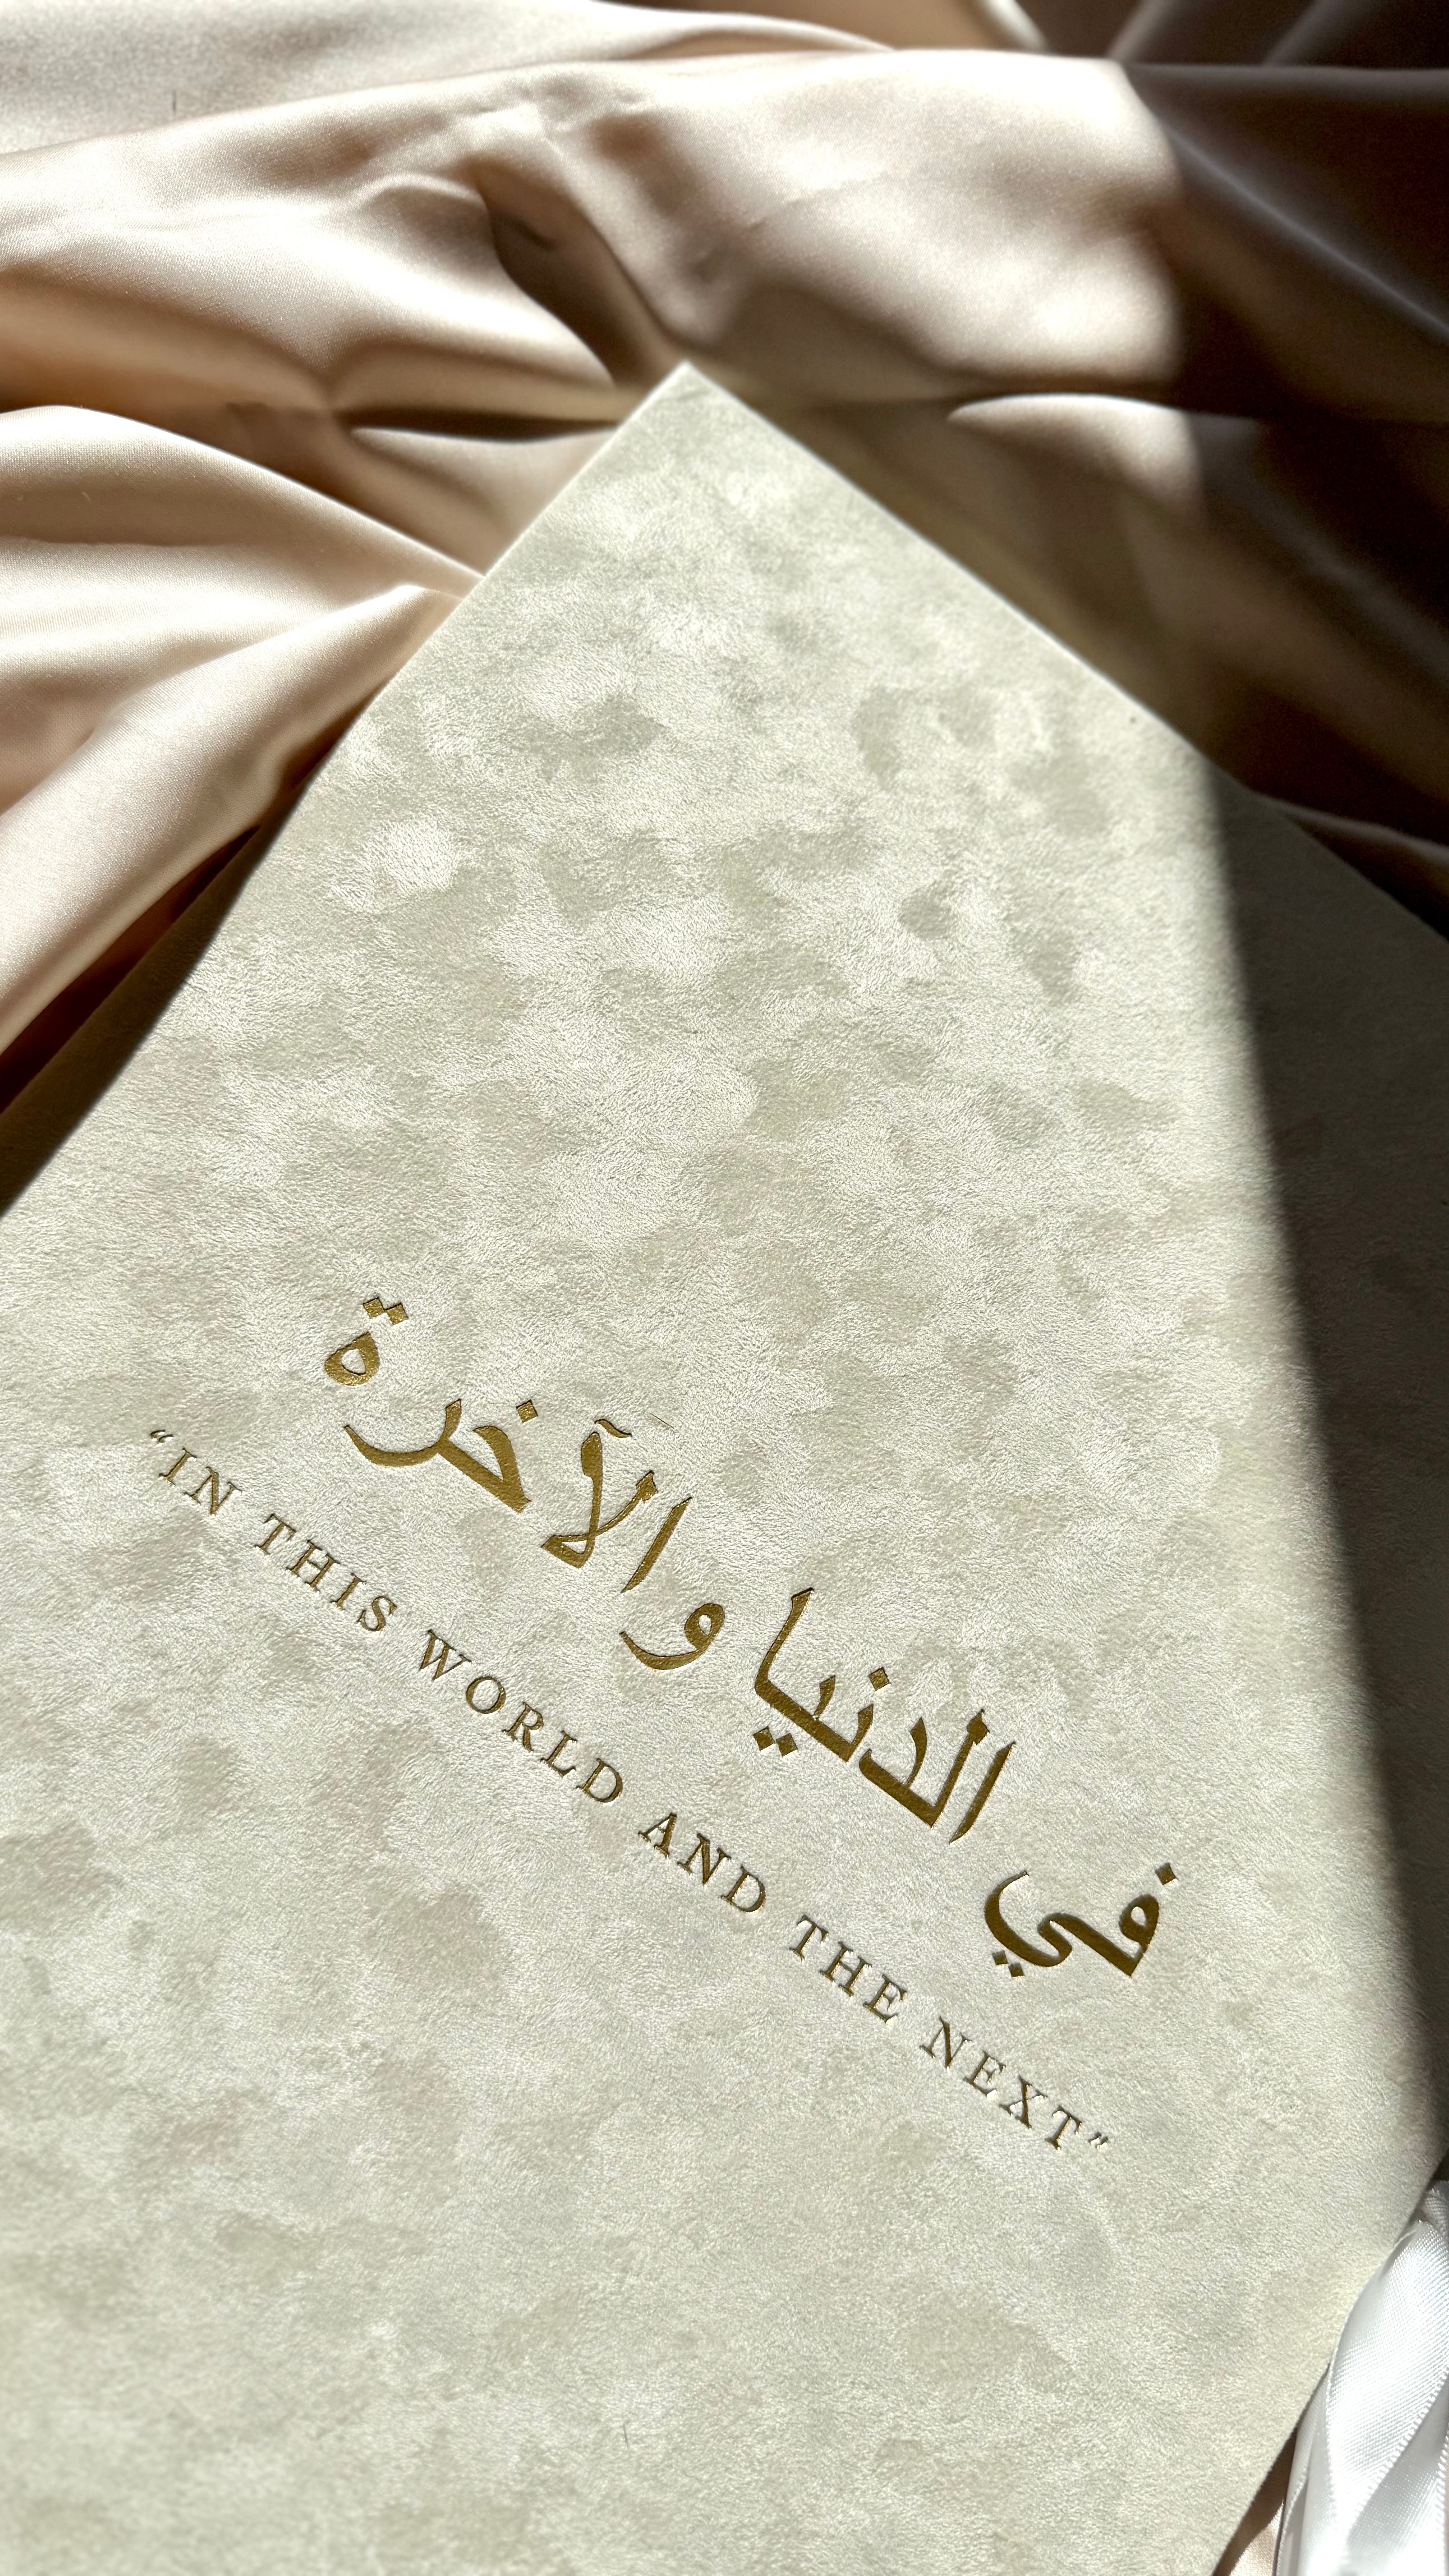 في الدنيا و الآخرة
“IN THIS WORLD AND THE NEXT”